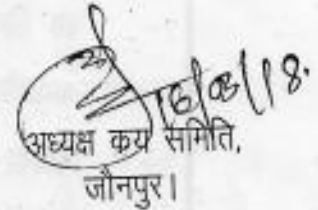 16/08/18.
अध्यक्ष कय समिति,
जौनपुर।